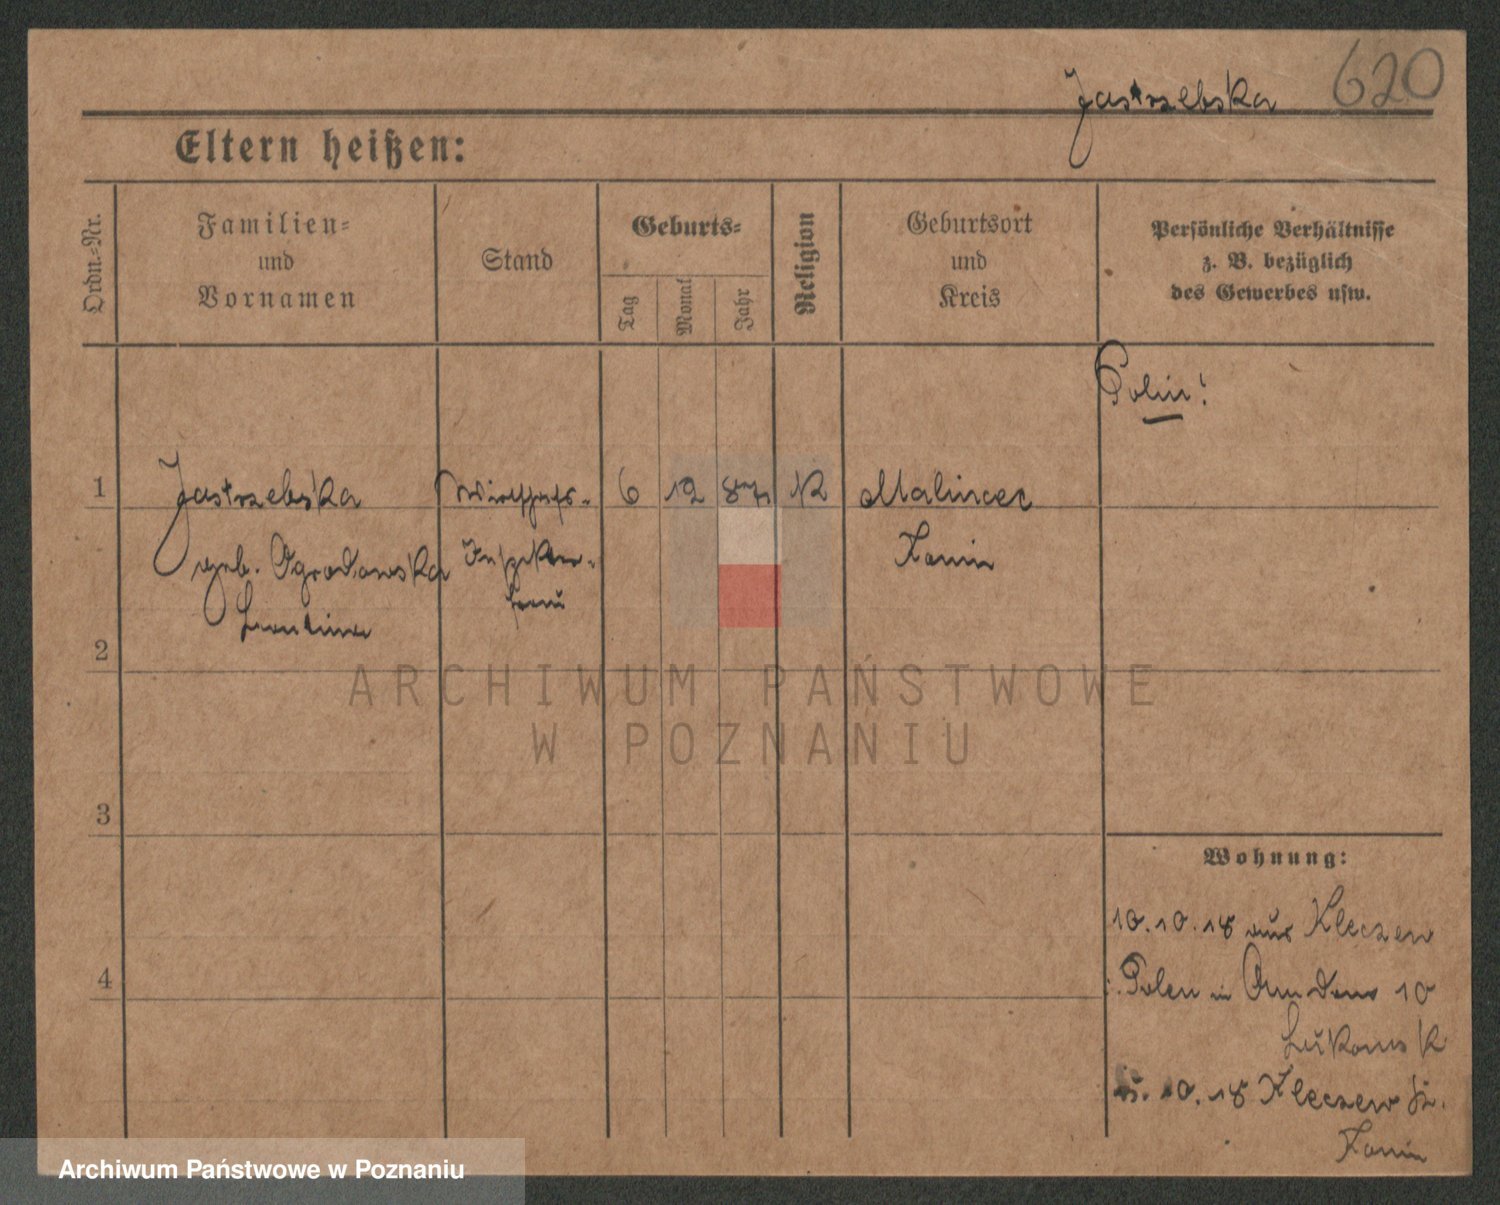 Jastrzebska 620
Eltern heißen:
Ordn.-Nr.
Familien-
und
Vornamen
Stand
Geburts-
Tag
Monat
Jahr
Religion
Geburtsort
und
Kreis
Persönliche Verhältnisse
z. B. bezüglich
des Gewerbes usw.
Polin!
1 Jastrzebska Wirtschafts- 6 12 87 K Malincec
geb. Ogrodowska Inspektor- Konin
Leontine frau
2
3
4
Wohnung:
10.10.18 aus Kleczew
Polen in 10
Lukowsk
10.18 Kleczew Kr.
Konin
ARCHIWUM PAŃSTWOWE
W POZNANIU
Archiwum Państwowe w Poznaniu